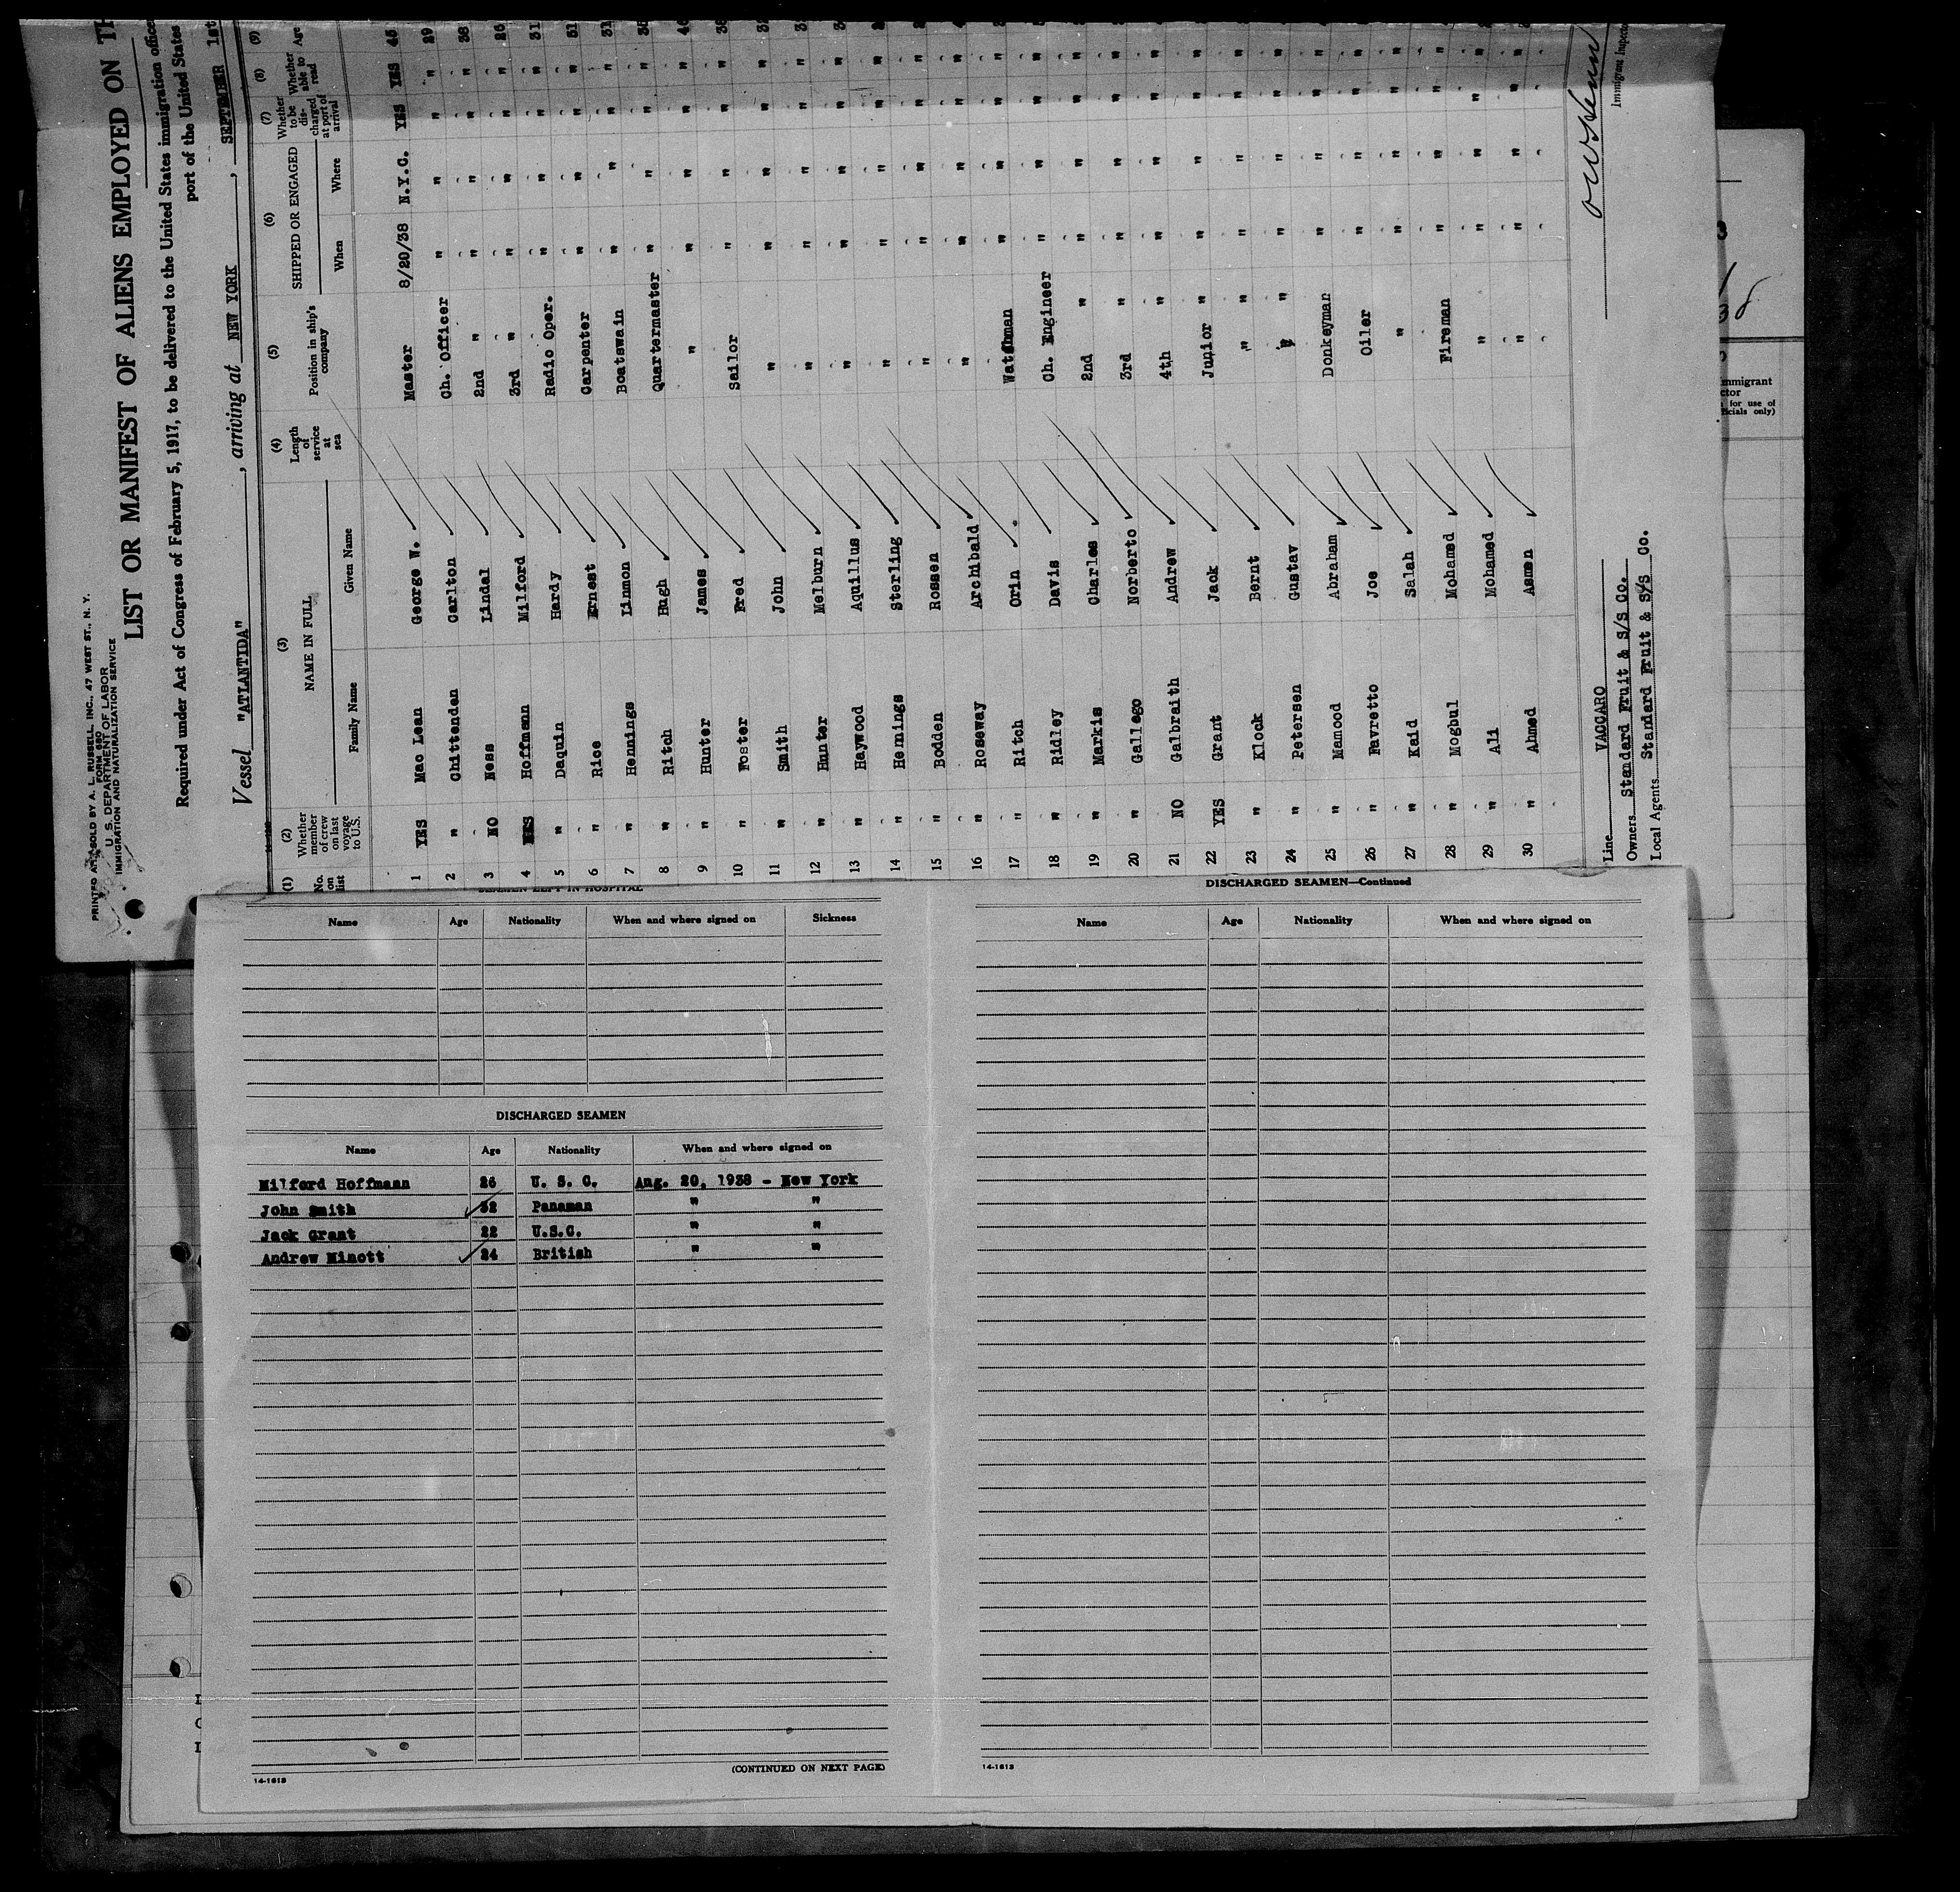 PRINTED AND SOLD BY A. L. RUSSELL, INC., 47 WEST ST., N. Y.
FORM 680
U. S. DEPARTMENT OF LABOR
IMMIGRATION AND NATURALIZATION SERVICE
LIST OR MANIFEST OF ALIENS EMPLOYED ON
Required under Act of Congress of February 5, 1917, to be delivered to the United States immigration
port of the United States
Vessel "ATLANTIDA", arriving at NEW YORK, SEPTEMBER 1st
(1) (2) (3) (4) (5) (6) (7) (8) (9)
No. on list Whether member of crew on last voyage to U.S. NAME IN FULL Family Name Given Name Length of service at sea Position in ship's company SHIPPED OR ENGAGED When Where Whether to be discharged at port of arrival Whether able to read Age
1 YES Mac Lean George W. Master 8/20/38 N.Y.C. YES YES 45
2 " Chittenden Carlton Ch. Officer " " " " 29
3 NO Ness Lindal 2nd " " " " " 38
4 YES Hoffmann Milford 3rd " " " " " 26
5 " Daquin Hardy Radio Oper. " " " " 31
6 " Rice Ernest Carpenter " " " " 51
7 " Hennings Linmon Boatswain " " " " 31
8 " Ritch Hugh Quartermaster " " " "
9 " Hunter James " " " " "
10 " Foster Fred Sailor " " " "
11 " Smith John " " " " "
12 " Hunter Melburn " " " " "
13 " Haywood Aquillus " " " " "
14 " Hemings Sterling " " " " "
15 " Bodden Rossen " " " " "
16 " Roseway Archibald " " " " "
17 " Ritch Orin " " " "
18 " Ridley Davis Ch. Engineer " " " "
19 " Markis Charles 2nd " " " " "
20 " Gallego Norberto 3rd " " " " "
21 NO Galbraith Andrew 4th " " " " "
22 YES Grant Jack Junior " " " " "
23 " Klock Bernt " " " " " "
24 " Petersen Gustav " " " " " "
25 " Mamood Abraham Donkeyman " " " "
26 " Favretto Joe Oiler " " " "
27 " Kaid Salah " " " " "
28 " Mogbul Mohamed Fireman " " " "
29 " Ali Mohamed " " " " "
30 " Ahmed Asmen " " " " "
Line VACCARO
Owners Standard Fruit & S/S Co.
Local Agents Standard Fruit & S/S Co.
Immigrant
for use of
officials only)
SEAMEN LEFT IN HOSPITAL
Name Age Nationality When and where signed on Sickness
DISCHARGED SEAMEN
Name Age Nationality When and where signed on
Milford Hoffmann 26 U. S. C. Aug. 20, 1938 - New York
John Smith 32 Panaman " "
Jack Grant 22 U.S.C. " "
Andrew Minott 24 British " "
(CONTINUED ON NEXT PAGE)
14-1613
DISCHARGED SEAMEN—Continued
Name Age Nationality When and where signed on
14-1613